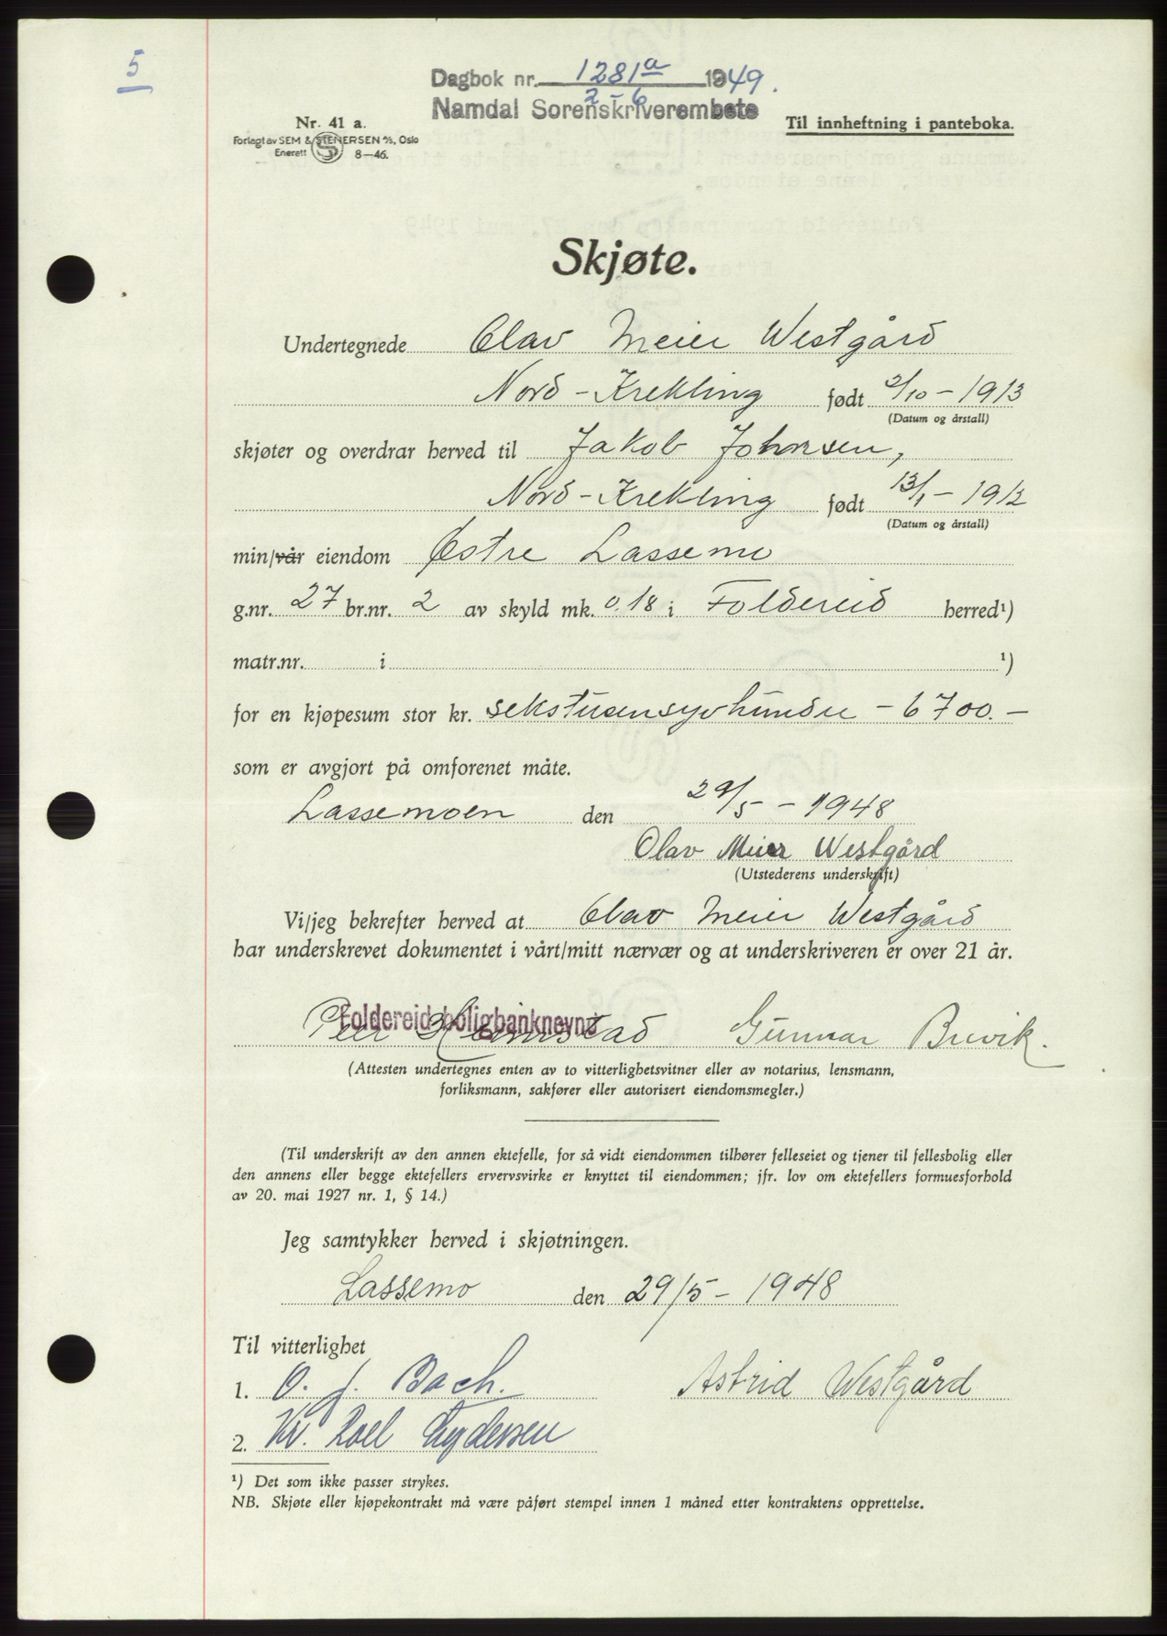 5
Dagbok nr. 1281a 1949.
2-6
Namdal Sorenskriverembete
Til innheftning i panteboka.
Nr. 41 a.
Forlagt av SEM & STENERSEN A/S, Oslo
Enerett 8—46.
Skjøte.
Undertegnede Olav Meier Westgård
Nord-Krekling født 2/10-1913
(Datum og årstall)
skjøter og overdrar herved til Jakob Johnsen,
Nord-Krekling født 13/1-1912
(Datum og årstall)
min/vår eiendom Østre Lassemo
g.nr. 27 br.nr. 2 av skyld mk. 0.18 i Foldereid herred¹)
matr.nr. i ¹)
for en kjøpesum stor kr. sekstusensyvhundre - 6700.-
som er avgjort på omforenet måte.
Lassemoen den 29/5-1948
Olav Meier Westgård
(Utstederens underskrift)
Vi/jeg bekrefter herved at Olav Meier Westgård
har underskrevet dokumentet i vårt/mitt nærvær og at underskriveren er over 21 år.
Foldereid boligbanknevnd
Peter Heimstad Gunnar Buvik.
(Attesten undertegnes enten av to vitterlighetsvitner eller av notarius, lensmann,
forliksmann, sakfører eller autorisert eiendomsmegler.)
(Til underskrift av den annen ektefelle, for så vidt eiendommen tilhører felleseiet og tjener til fellesbolig eller
den annens eller begge ektefellers ervervsvirke er knyttet til eiendommen; jfr. lov om ektefellers formuesforhold
av 20. mai 1927 nr. 1, § 14.)
Jeg samtykker herved i skjøtningen.
Lassemo den 29/5-1948
Til vitterlighet
1. O. J. Bach. Astrid Westgård
2. Kr. Roel
¹) Det som ikke passer strykes.
NB. Skjøte eller kjøpekontrakt må være påført stempel innen 1 måned etter kontraktens opprettelse.